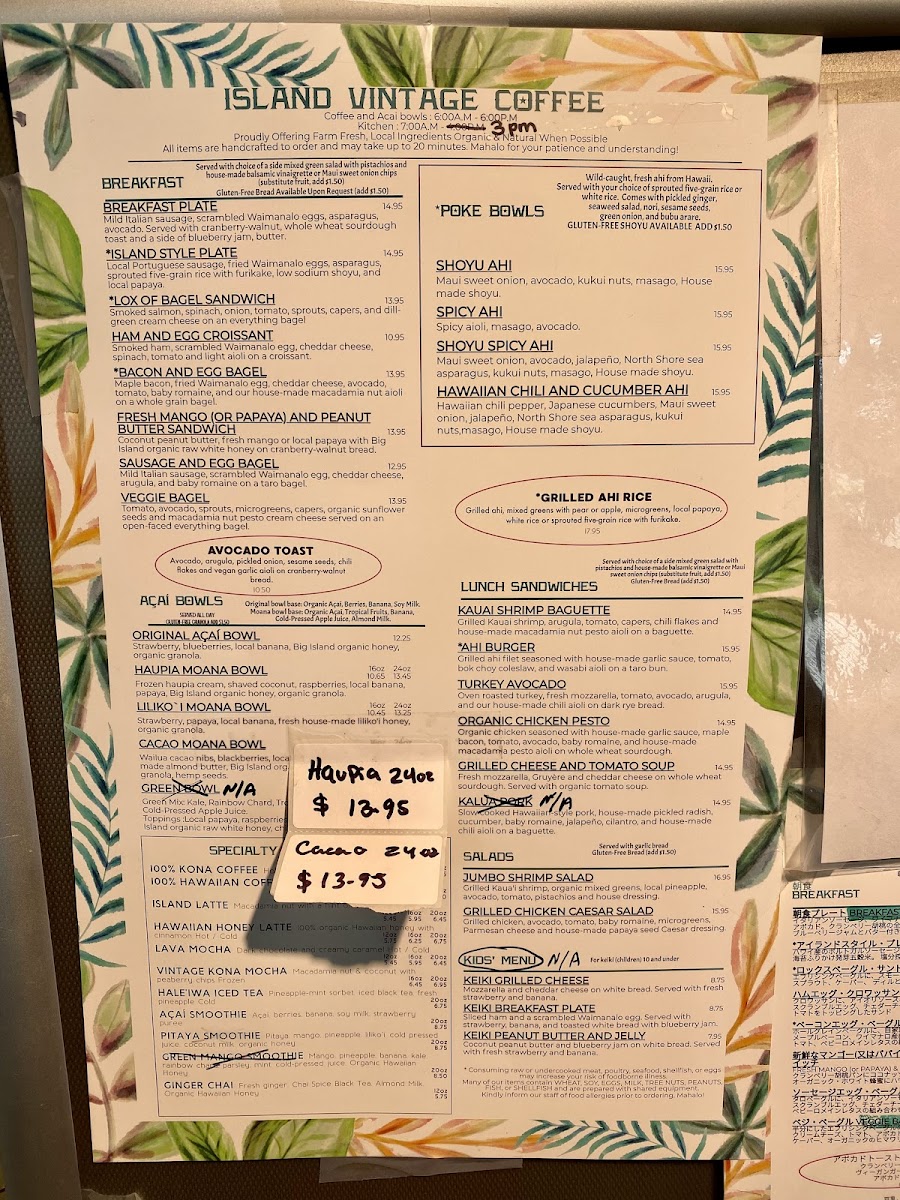 ISLAND VINTAGE COFFEE
Coffee and Acai bowls : 6:00A.M - 6:00P.M
Kitchen : 7:00A.M - 3pm
Proudly Offering Farm Fresh, Local Ingredients Organic & Natural When Possible
All items are handcrafted to order and may take up to 20 minutes. Mahalo for your patience and understanding!
BREAKFAST
Served with choice of a side mixed green salad with pistachios and
house-made balsamic vinaigrette or Maui sweet onion chips
(substitute fruit, add $1.50)
Gluten-Free Bread Available Upon Request (add $1.50)
BREAKFAST PLATE 14.95
Mild Italian sausage, scrambled Waimanalo eggs, asparagus,
avocado. Served with cranberry-walnut, whole wheat sourdough
toast and a side of blueberry jam, butter.
*ISLAND STYLE PLATE 14.95
Local Portuguese sausage, fried Waimanalo eggs, asparagus,
sprouted five-grain rice with furikake, low sodium shoyu, and
local papaya.
*LOX OF BAGEL SANDWICH 13.95
Smoked salmon, spinach, onion, tomato, sprouts, capers, and dill-
green cream cheese on an everything bagel
HAM AND EGG CROISSANT 10.95
Smoked ham, scrambled Waimanalo egg, cheddar cheese,
spinach, tomato and light aioli on a croissant.
*BACON AND EGG BAGEL 13.95
Maple bacon, fried Waimanalo egg, cheddar cheese, avocado,
tomato, baby romaine, and our house-made macadamia nut aioli
on a whole grain bagel.
FRESH MANGO (OR PAPAYA) AND PEANUT
BUTTER SANDWICH 13.95
Coconut peanut butter, fresh mango or local papaya with Big
Island organic raw white honey on cranberry-walnut bread.
SAUSAGE AND EGG BAGEL 12.95
Mild Italian sausage, scrambled Waimanalo egg, cheddar cheese,
arugula, and baby romaine on a taro bagel.
VEGGIE BAGEL 13.95
Tomato, avocado, sprouts, microgreens, capers, organic sunflower
seeds and macadamia nut pesto cream cheese served on an
open-faced everything bagel.
AVOCADO TOAST
Avocado, arugula, pickled onion, sesame seeds, chili
flakes and vegan garlic aioli on cranberry-walnut
bread.
10.50
AÇAÍ BOWLS
SERVED ALL DAY
GLUTEN-FREE GRANOLA ADD $1.50
Original bowl base: Organic Açaí, Berries, Banana, Soy Milk.
Moana bowl base: Organic Açaí, Tropical Fruits, Banana,
Cold-Pressed Apple Juice, Almond Milk.
ORIGINAL AÇAÍ BOWL 12.25
Strawberry, blueberries, local banana, Big Island organic honey,
organic granola.
HAUPIA MOANA BOWL 16oz 24oz
10.65 13.45
Frozen haupia cream, shaved coconut, raspberries, local banana,
papaya, Big Island organic honey, organic granola.
LILIKO`I MOANA BOWL 16oz 24oz
10.45 13.25
Strawberry, papaya, local banana, fresh house-made liliko'i honey,
organic granola.
CACAO MOANA BOWL
Wailua cacao nibs, blackberries, loca
made almond butter, Big Island orga
granola, hemp seeds.
GREEN BOWL N/A
Green Mix: Kale, Rainbow Chard, Tro
Cold-Pressed Apple Juice.
Toppings :Local papaya, raspberries
Island organic raw white honey, ch
Haupia 24oz
$ 13.95
Cacao 24oz
$13.95
SPECIALTY
100% KONA COFFEE
100% HAWAIIAN COFF
ISLAND LATTE Macadamia nut
16oz 20oz
5.45 5.95 6.45
HAWAIIAN HONEY LATTE 100% organic Hawaiian honey with
cinnamon Hot / Cold 12oz 16oz 20oz
5.75 6.25 6.75
LAVA MOCHA Dark chocolate and creamy caramel Hot / Cold
12oz 16oz 20oz
5.45 5.95 6.95
VINTAGE KONA MOCHA Macadamia nut & coconut with
peaberry chips Frozen 16oz 20oz
6.45 6.95
HALE'IWA ICED TEA Pineapple-mint sorbet, iced black tea, fresh
pineapple Cold 20oz
6.75
AÇAÍ SMOOTHIE Açaí, berries, banana, soy milk, strawberry
puree 20oz
8.75
PITAYA SMOOTHIE Pitaya, mango, pineapple, liliko'i, cold pressed
juice, coconut milk, organic honey 20oz
8.75
GREEN MANGO SMOOTHIE Mango, pineapple, banana, kale,
rainbow chard, parsley, mint, cold-pressed juice, Organic Hawaiian
Honey 20oz
8.50
GINGER CHAI Fresh ginger, Chai Spice Black Tea, Almond Milk,
Organic Hawaiian Honey 12oz
5.75
*POKE BOWLS
Wild-caught, fresh ahi from Hawaii.
Served with your choice of sprouted five-grain rice or
white rice. Comes with pickled ginger,
seaweed salad, nori, sesame seeds,
green onion, and bubu arare.
GLUTEN-FREE SHOYU AVAILABLE ADD $1.50
SHOYU AHI 15.95
Maui sweet onion, avocado, kukui nuts, masago, House
made shoyu.
SPICY AHI 15.95
Spicy aioli, masago, avocado.
SHOYU SPICY AHI 15.95
Maui sweet onion, avocado, jalapeño, North Shore sea
asparagus, kukui nuts, masago, House made shoyu.
HAWAIIAN CHILI AND CUCUMBER AHI 15.95
Hawaiian chili pepper, Japanese cucumbers, Maui sweet
onion, jalapeño, North Shore sea asparagus, kukui
nuts,masago, House made shoyu.
*GRILLED AHI RICE
Grilled ahi, mixed greens with pear or apple, microgreens, local papaya,
white rice or sprouted five-grain rice with furikake.
17.95
LUNCH SANDWICHES
Served with choice of a side mixed green salad with
pistachios and house-made balsamic vinaigrette or Maui
sweet onion chips (substitute fruit, add $1.50)
Gluten-Free Bread (add $1.50)
KAUAI SHRIMP BAGUETTE 14.95
Grilled Kauai shrimp, arugula, tomato, capers, chili flakes and
house-made macadamia nut pesto aioli on a baguette.
*AHI BURGER 15.95
Grilled ahi filet seasoned with house-made garlic sauce, tomato,
bok choy coleslaw, and wasabi aioli on a taro bun.
TURKEY AVOCADO 15.95
Oven roasted turkey, fresh mozzarella, tomato, avocado, arugula,
and our house-made chili aioli on dark rye bread.
ORGANIC CHICKEN PESTO 14.95
Organic chicken seasoned with house-made garlic sauce, maple
bacon, tomato, avocado, baby romaine, and house-made
macadamia pesto aioli on whole wheat sourdough.
GRILLED CHEESE AND TOMATO SOUP 14.95
Fresh mozzarella, Gruyère and cheddar cheese on whole wheat
sourdough. Served with organic tomato soup.
KALUA PORK N/A 14.95
Slow-cooked Hawaiian-style pork, house-made pickled radish,
cucumber, baby romaine, jalapeño, cilantro, and house-made
chili aioli on a baguette.
SALADS
Served with garlic bread
Gluten-Free Bread (add $1.50)
JUMBO SHRIMP SALAD 16.95
Grilled Kaua'i shrimp, organic mixed greens, local pineapple,
avocado, tomato, pistachios and house dressing.
GRILLED CHICKEN CAESAR SALAD 15.95
Grilled chicken, avocado, tomato, baby romaine, microgreens,
Parmesan cheese and house-made papaya seed Caesar dressing.
KIDS' MENU N/A For keiki (children) 10 and under
KEIKI GRILLED CHEESE 8.75
Mozzarella and cheddar cheese on white bread. Served with fresh
strawberry and banana.
KEIKI BREAKFAST PLATE 8.75
Sliced ham and a scrambled Waimanalo egg. Served with
strawberry, banana, and toasted white bread with blueberry jam.
KEIKI PEANUT BUTTER AND JELLY 7.95
Coconut peanut butter and blueberry jam on white bread. Served
with fresh strawberry and banana.
* Consuming raw or undercooked meat, poultry, seafood, shellfish, or eggs
may increase your risk of foodborne illness.
Many of our items contain WHEAT, SOY, EGGS, MILK, TREE NUTS, PEANUTS,
FISH, or SHELLFISH and are prepared with shared equipment.
Kindly inform our staff of food allergies prior to ordering. Mahalo!
朝食
BREAKFAST
朝食プレート BREAKFAS
*アイランドスタイル・プレ
*ロックスベーグル・サンド
ハムエッグ・クロワッサン
*ベーコンエッグ・ベーグル
新鮮なマンゴー(又はパパイ
FRESH MANGO (or PAPAYA) &
ソーセージエッグ・ベーグル
ベジ・ベーグル VEGGIE BA
アボカドトースト